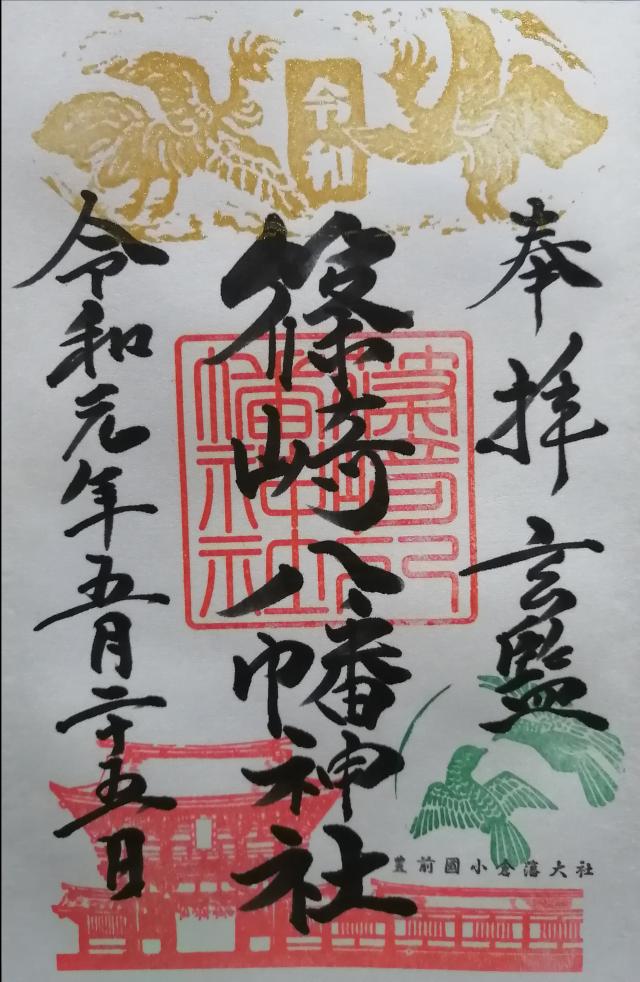 令和
奉拝 玄監
篠崎八幡神社
篠崎八幡神社
令和元年五月二十五日
豊前國小倉藩大社